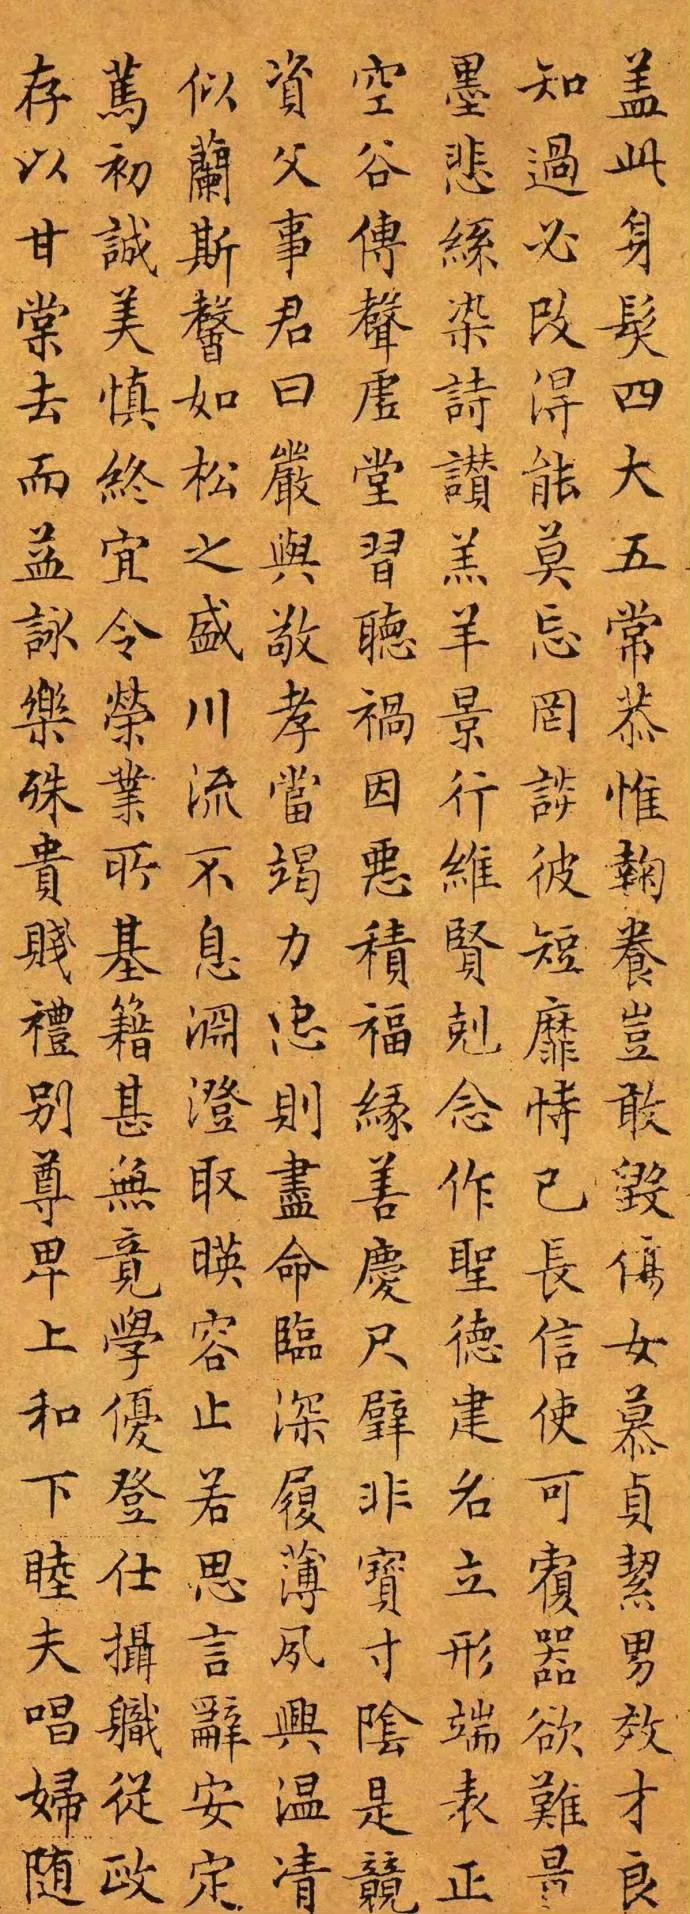 盖此身髮四大五常恭惟鞠養豈敢毀傷女慕貞絜男效才良
知過必改得能莫忘罔談彼短靡恃己長信使可覆器欲難量
墨悲絲染詩讃羔羊景行維賢剋念作聖德建名立形端表正
空谷傳聲虛堂習聽禍因惡積福緣善慶尺璧非寶寸陰是競
資父事君曰嚴與敬孝當竭力忠則盡命臨深履薄夙興温凊
似蘭斯馨如松之盛川流不息淵澄取暎容止若思言辭安定
篤初誠美慎終宜令榮業所基籍甚無竟學優登仕攝職從政
存以甘棠去而益詠樂殊貴賤禮別尊卑上和下睦夫唱婦随